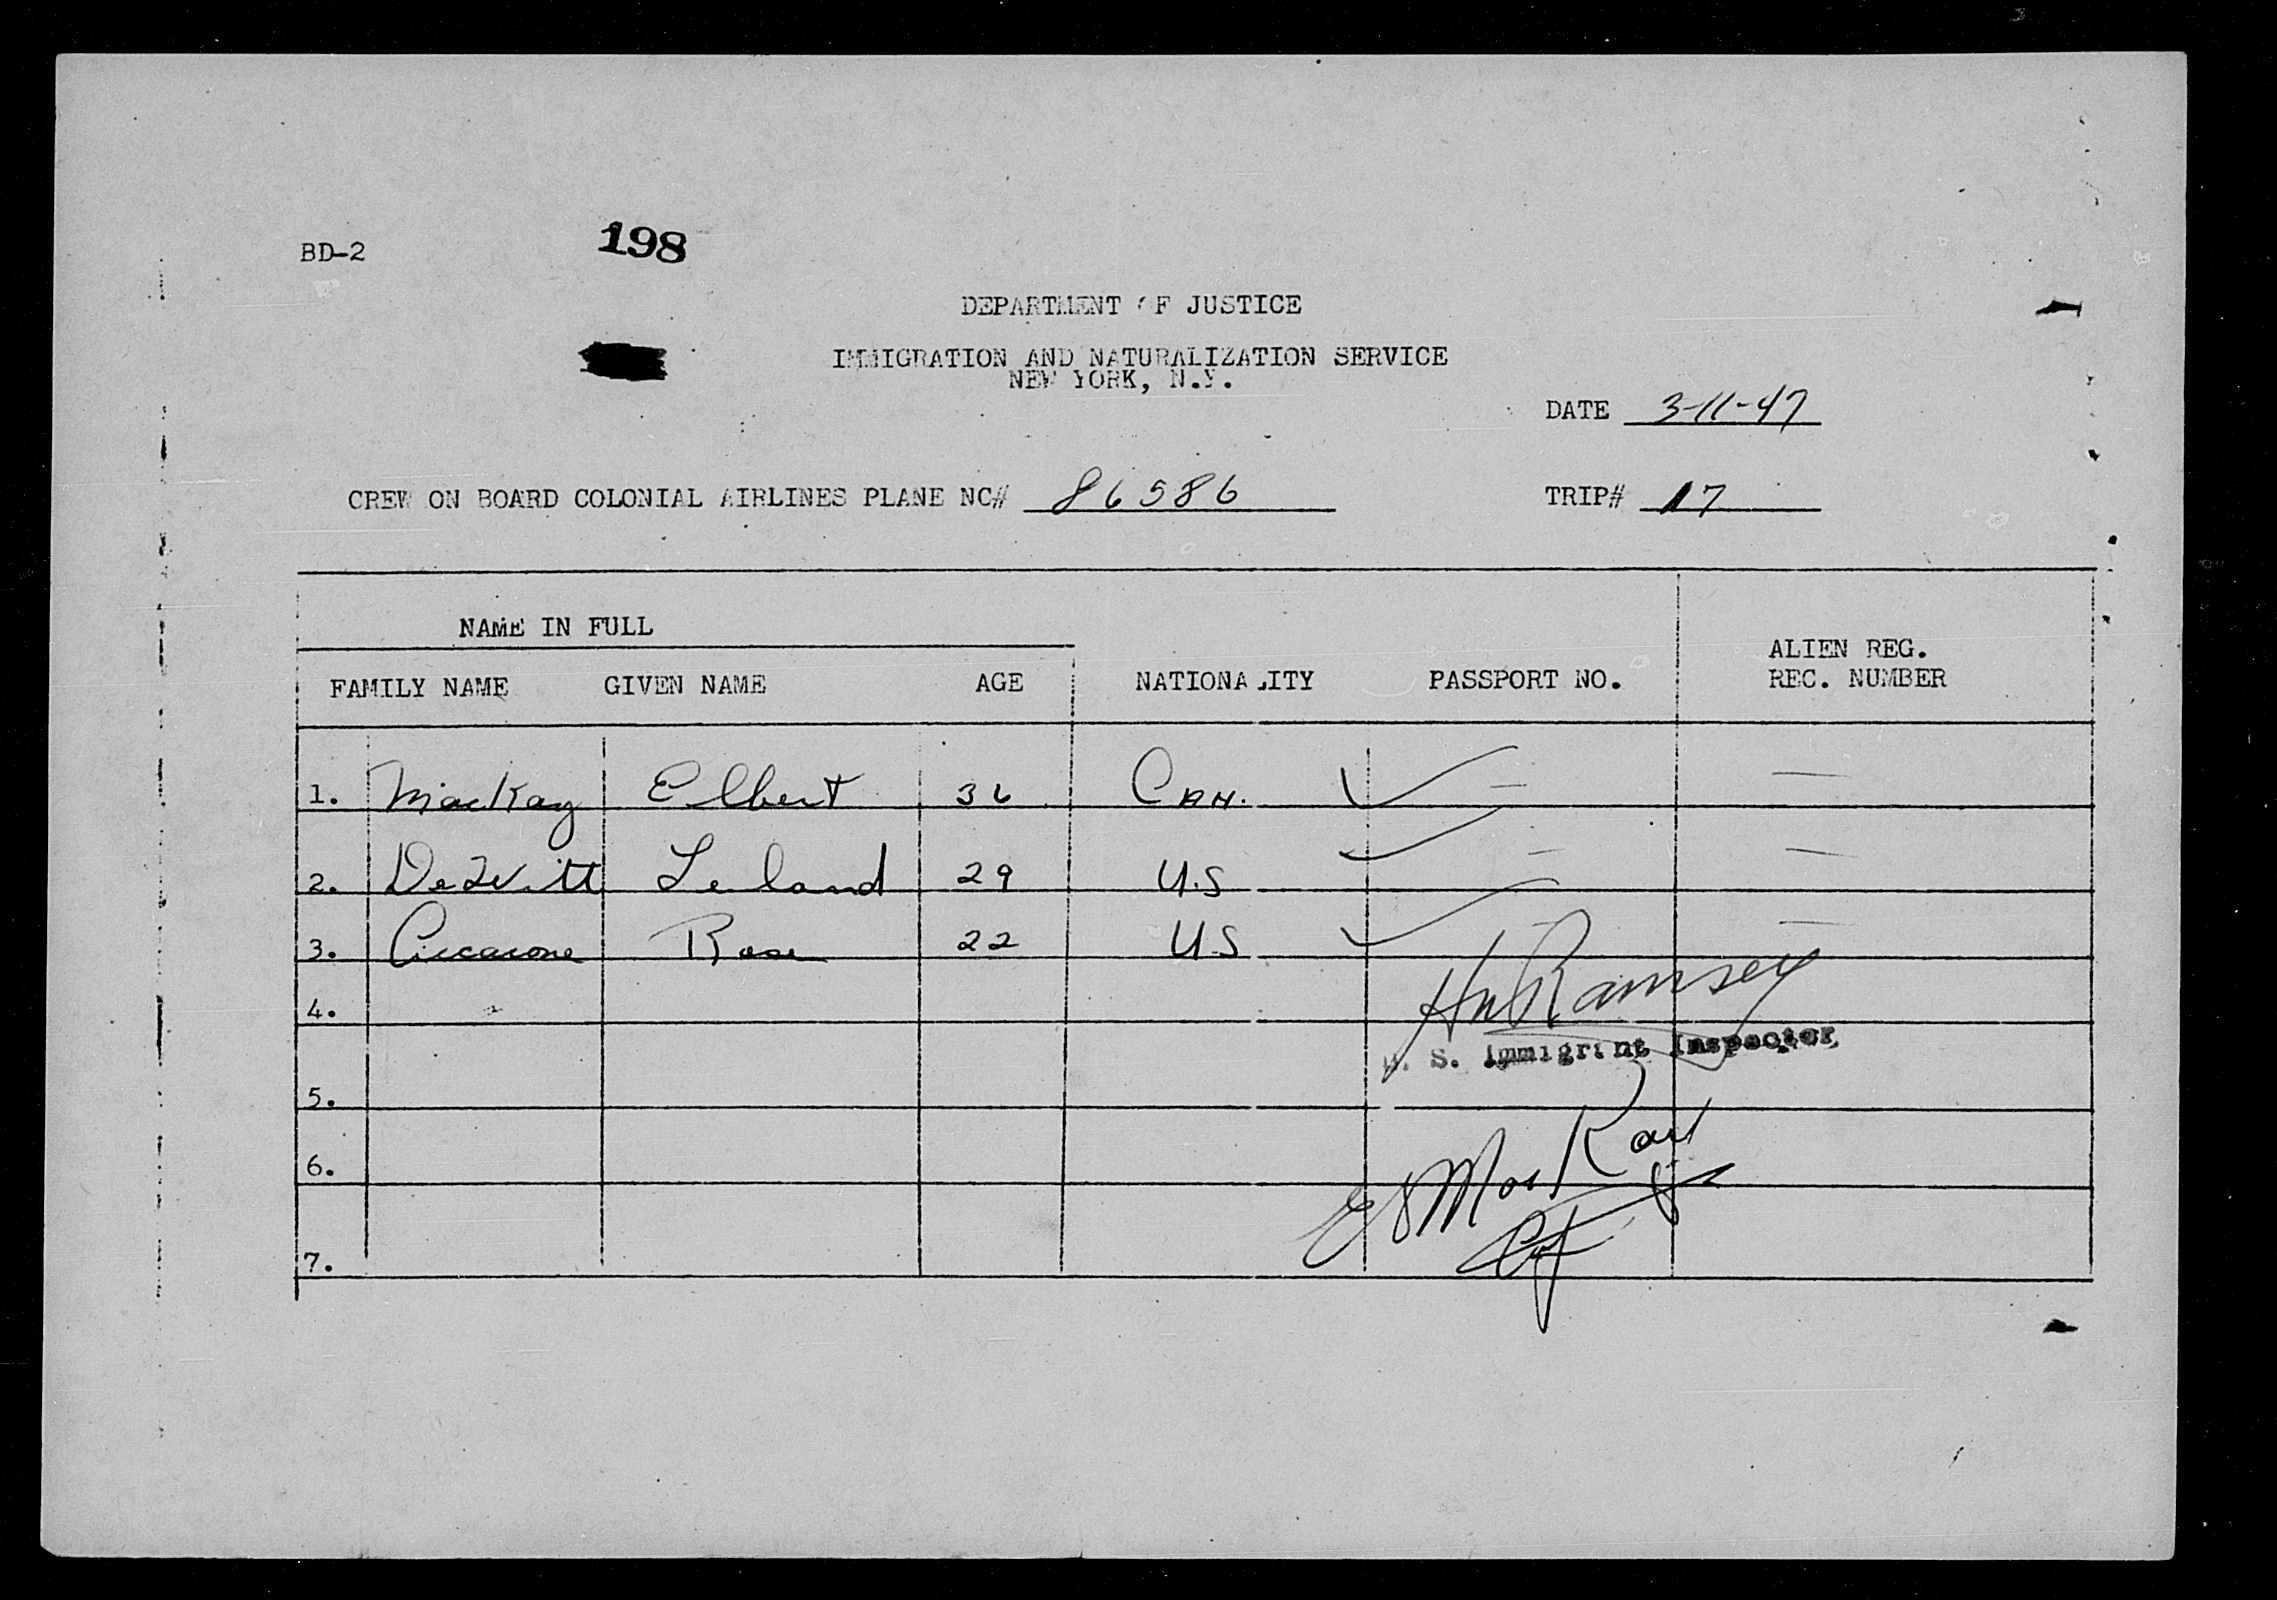 BD-2
198
DEPARTMENT OF JUSTICE
IMMIGRATION AND NATURALIZATION SERVICE
NEW YORK, N.Y.
DATE 3-11-47
CREW ON BOARD COLONIAL AIRLINES PLANE NC# 86586
TRIP# 17
NAME IN FULL
FAMILY NAME GIVEN NAME AGE NATIONALITY PASSPORT NO. ALIEN REG. REC. NUMBER
1. MacKay Elbert 36 Can. ✓ — —
2. DeWitt Leland 29 U.S ✓ — —
3. Ciccarone Rose 22 U.S ✓ — —
Ramsey
4.
U. S. Immigrant Inspector
5.
MacKay
6.
7.